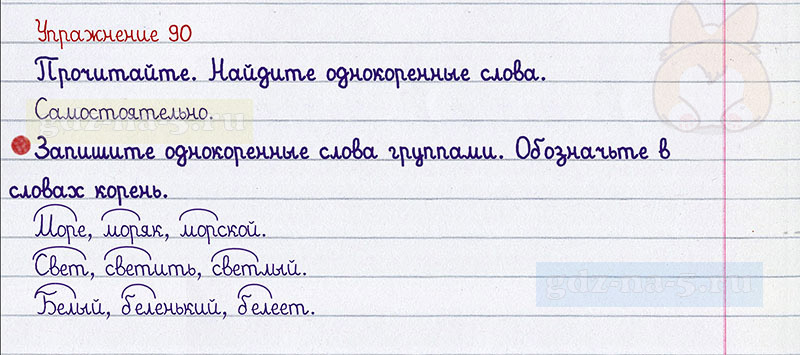 Упражнение 90
Прочитайте. Найдите однокоренные слова.
Самостоятельно.
gdz-na-5.ru
Запишите однокоренные слова группами. Обозначьте в
словах корень.
Море, моряк, морской.
Свет, светить, светлый.
gdz-na-5.ru
Белый, беленький, белеет.